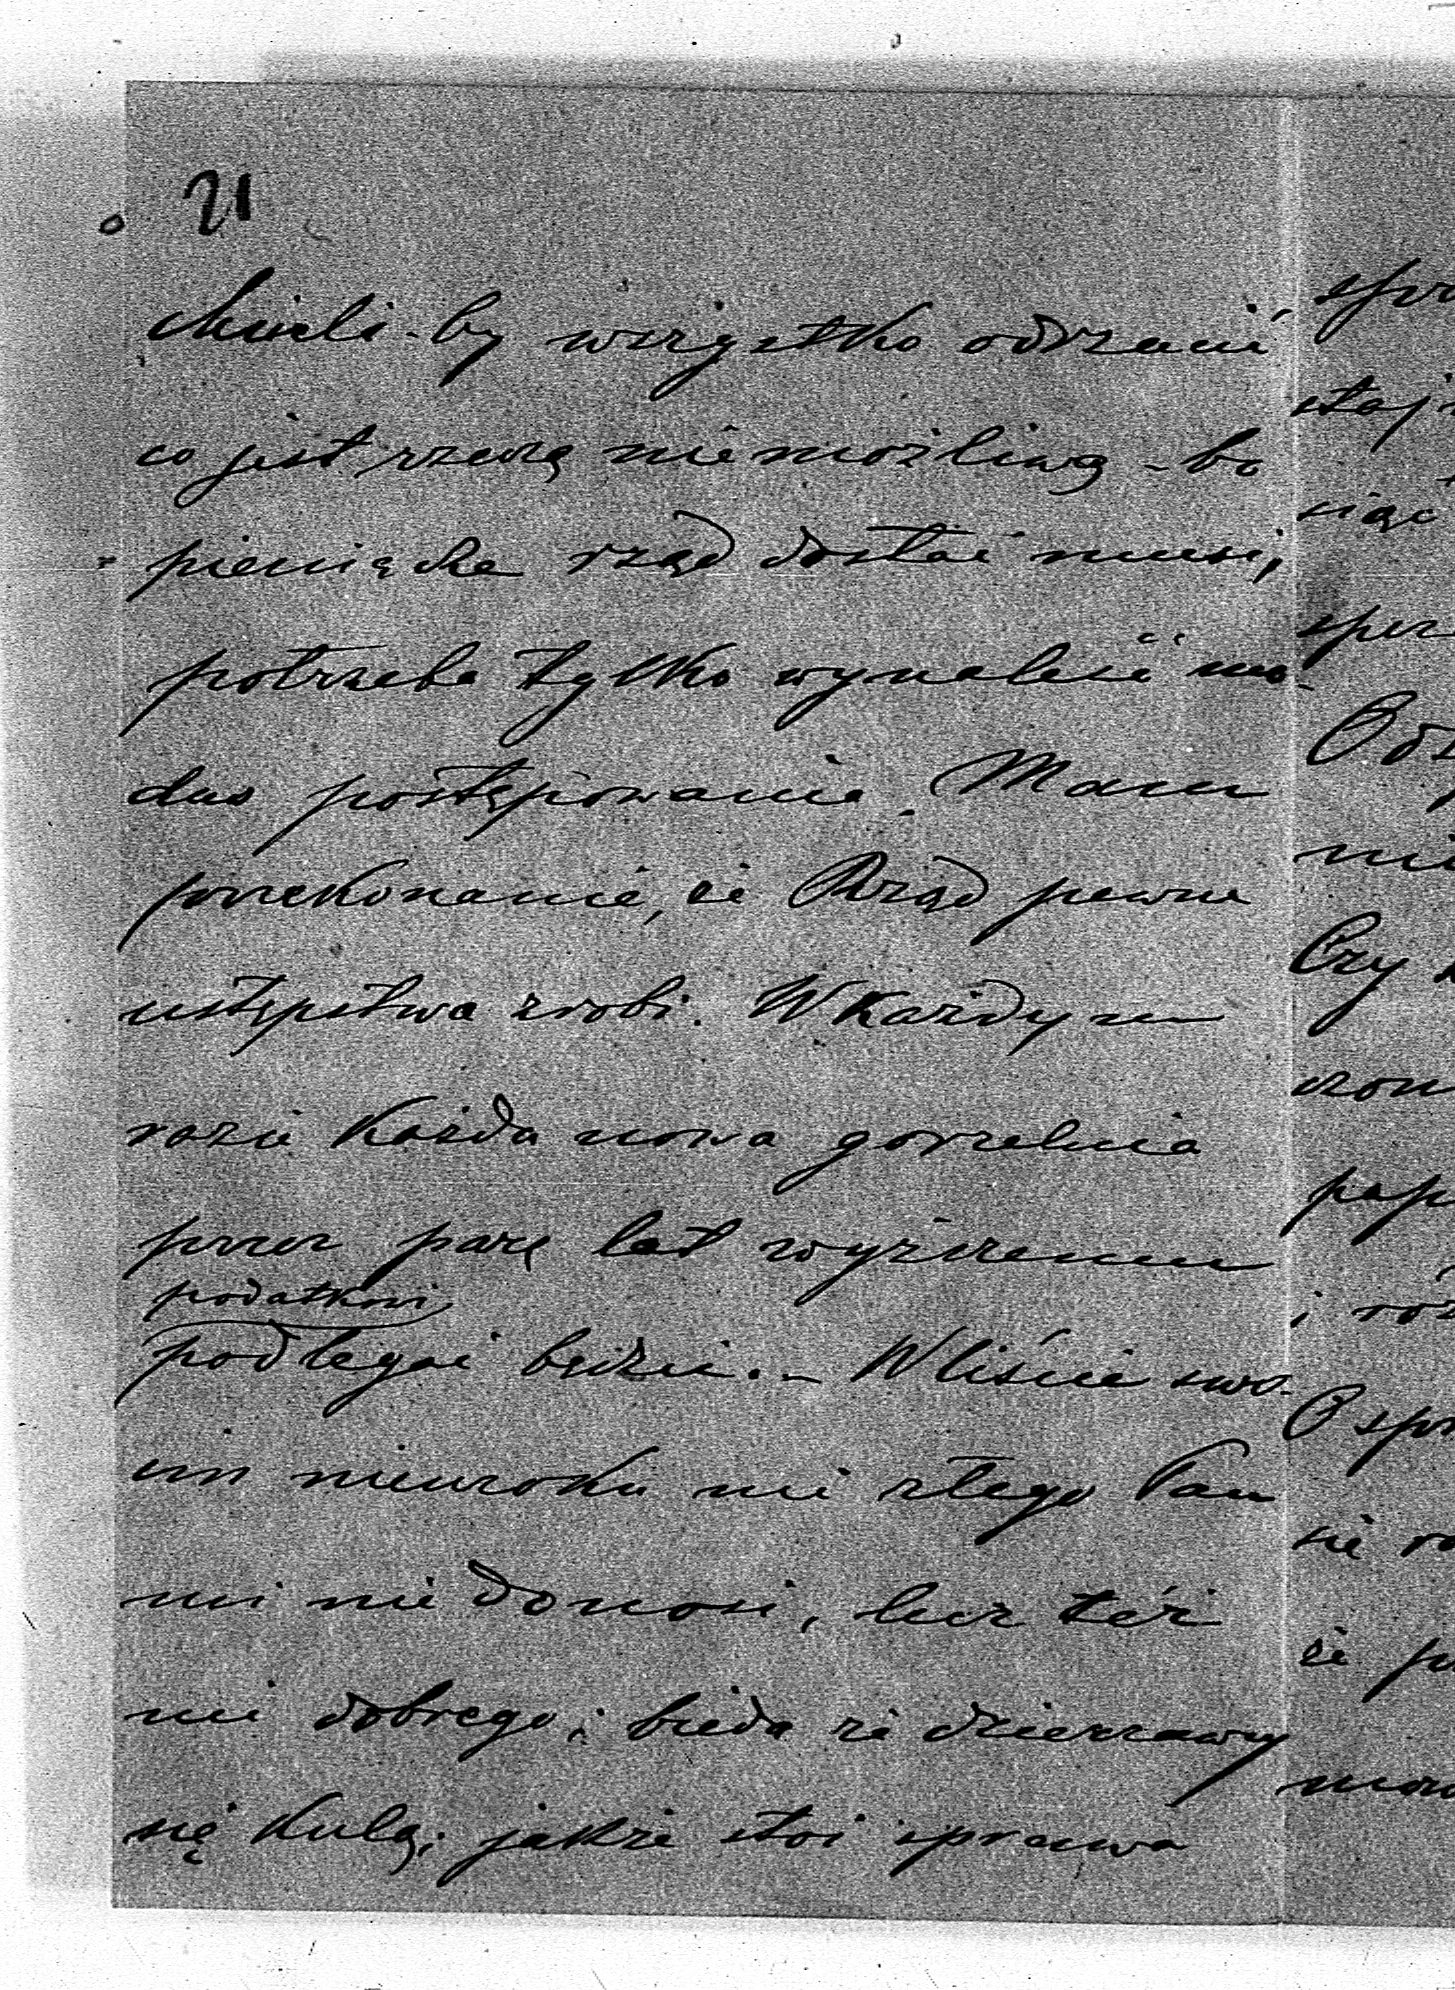 21
chcieli-by wszystko odrzucić,
co jest rzeczą niemożliwą - bo
pieniądze rząd dostać musi,
potrzeba tylko wynaleść mo-
dus postępowania. Mam
przekonanie, że Rząd pewne
ustępstwa zrobi. W każdym
razie każda nowa gorzelnia
przez parę lat wyższemu
podatkowi,
podlegać będzie. - W liście swo-
im nic złego Pan
mi nie donosi, lecz też
nic dobrego; bieda że dzierżawy
się kulą; jakże stoi sprawa
spr
staj
siąc
spr
Od
nie
Czy
czon
pap
i róż
O spr
się ro
że p
mów